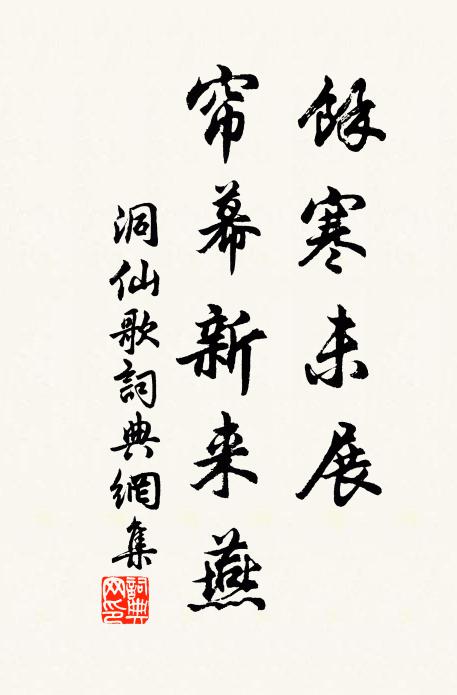 餘寒未展
帘幕新来燕
洞仙歌詞典網集
詞典网印